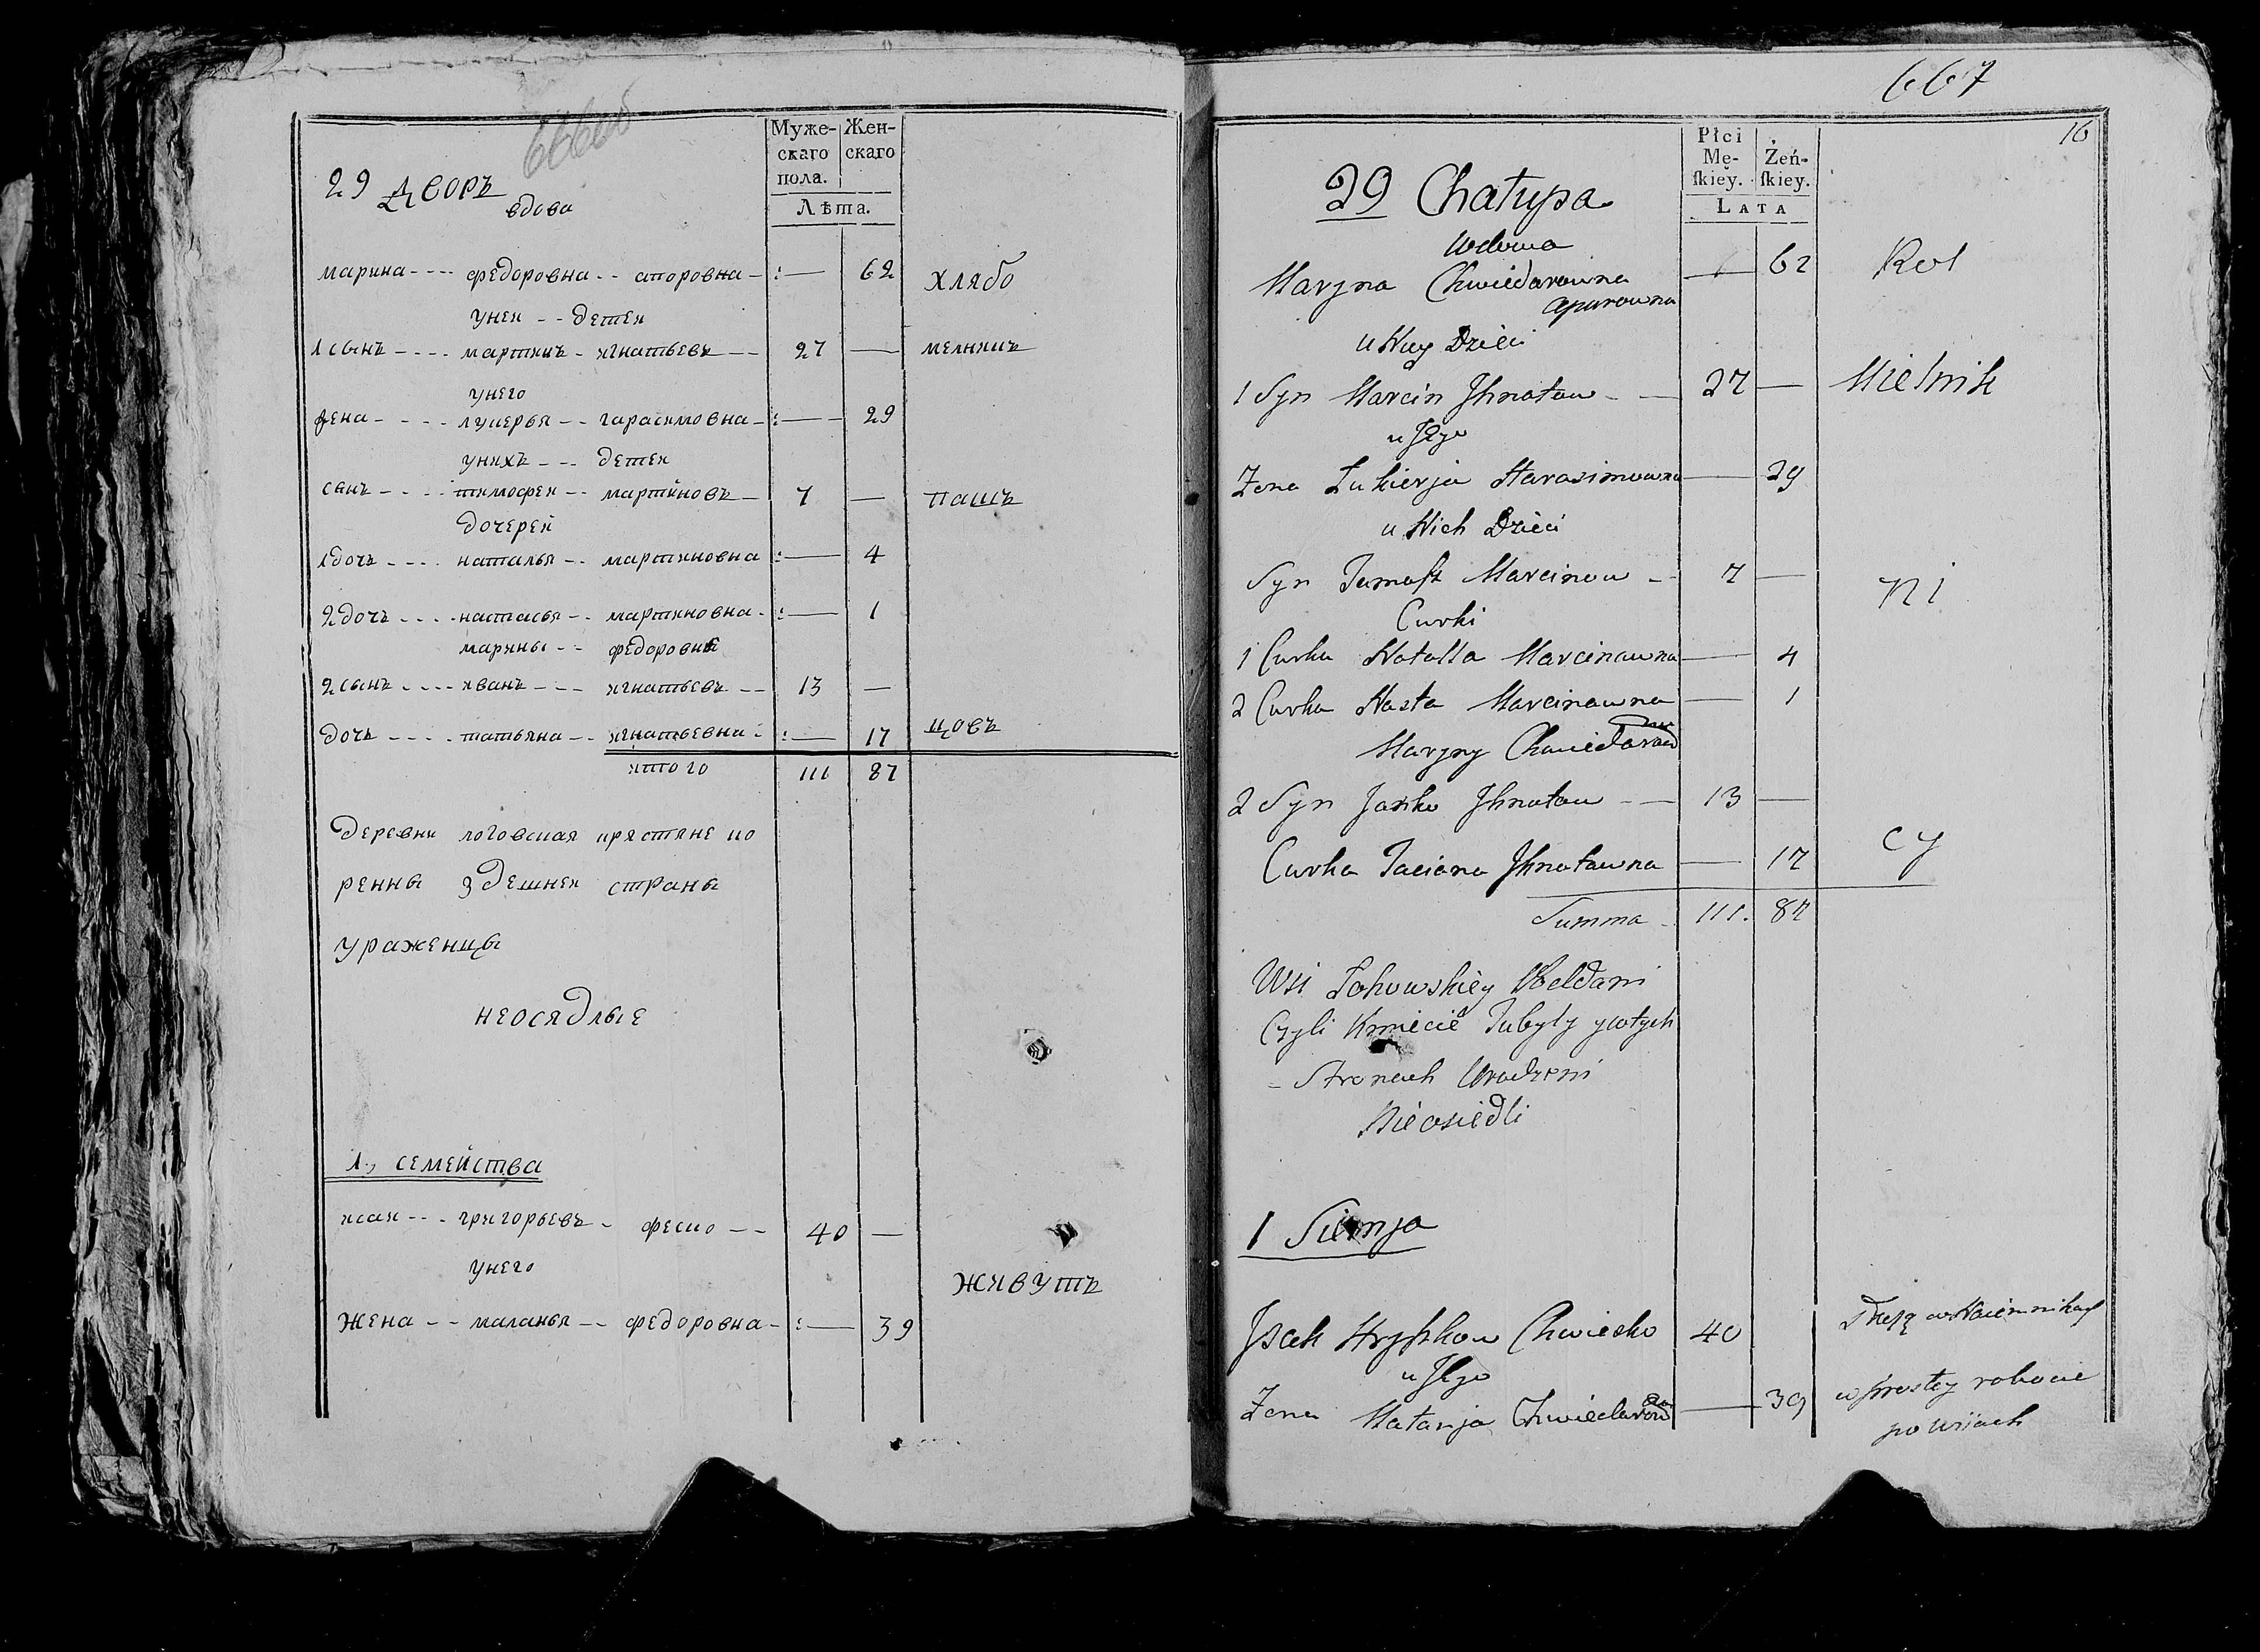 29 дворъ
вдова
Муже-
скаго
пола.
Жен-
скаго
Лѣта.
марина федоровна апоровна — 62 хлябо
унея детей
1 сынъ мартинъ игнатьевъ 27 — мелникъ
унего
жена лукерья гарасимовна — 29
унихъ детей
сынъ тимофей мартиновъ 7 — пашъ
дочерей
1 дочь наталья мартиновна — 4
2 дочь настасья мартиновна — 1
марины федоровны
2 сынъ иванъ игнатьевъ 13 —
дочь татьяна игнатьевна — 17 цовъ
итого 111 87
деревни логовская крястяне ко
ренны здешней страны
ураженцы
неосядлые
1, семейства
исак григорьевъ феско 40 —
унего
живутъ
жена маланья федоровна — 39
667
16
29 Chałupa
Płci
Mę-
ſkiey.
Żeń-
ſkiey.
LATA
Wdowa
Maryna Chwiedarowna — 62 Rol
Aparowna
u Niey Dzieci
1 Syn Marcin Jhnatow 27 — Mielnik
u Jego
Zona Łukierja Harasimowna — 29
u Nich Dzieci
Syn Tamaſz Marcinow 7 —
ni
Curki
1 Curka Natalla Marcinawna — 4
2 Curka Nasta Marcinawna — 1
Maryny Chwiedarowny
2 Syn Janko Jhnatow 13 —
cy
Curka Taciana Jhnatawna — 17
Summa 111. 87
Wsi Łohowskiey
Czyli Kmiecie Tubyly ywtych
Stronach Urodzeni
Nieosiedli
1 Siemja
Jsak Hryſzkow Chwiesko 40
u Jego
Zona Małanja Chwiedarowna — 39
w prostey robocie
po wsiach